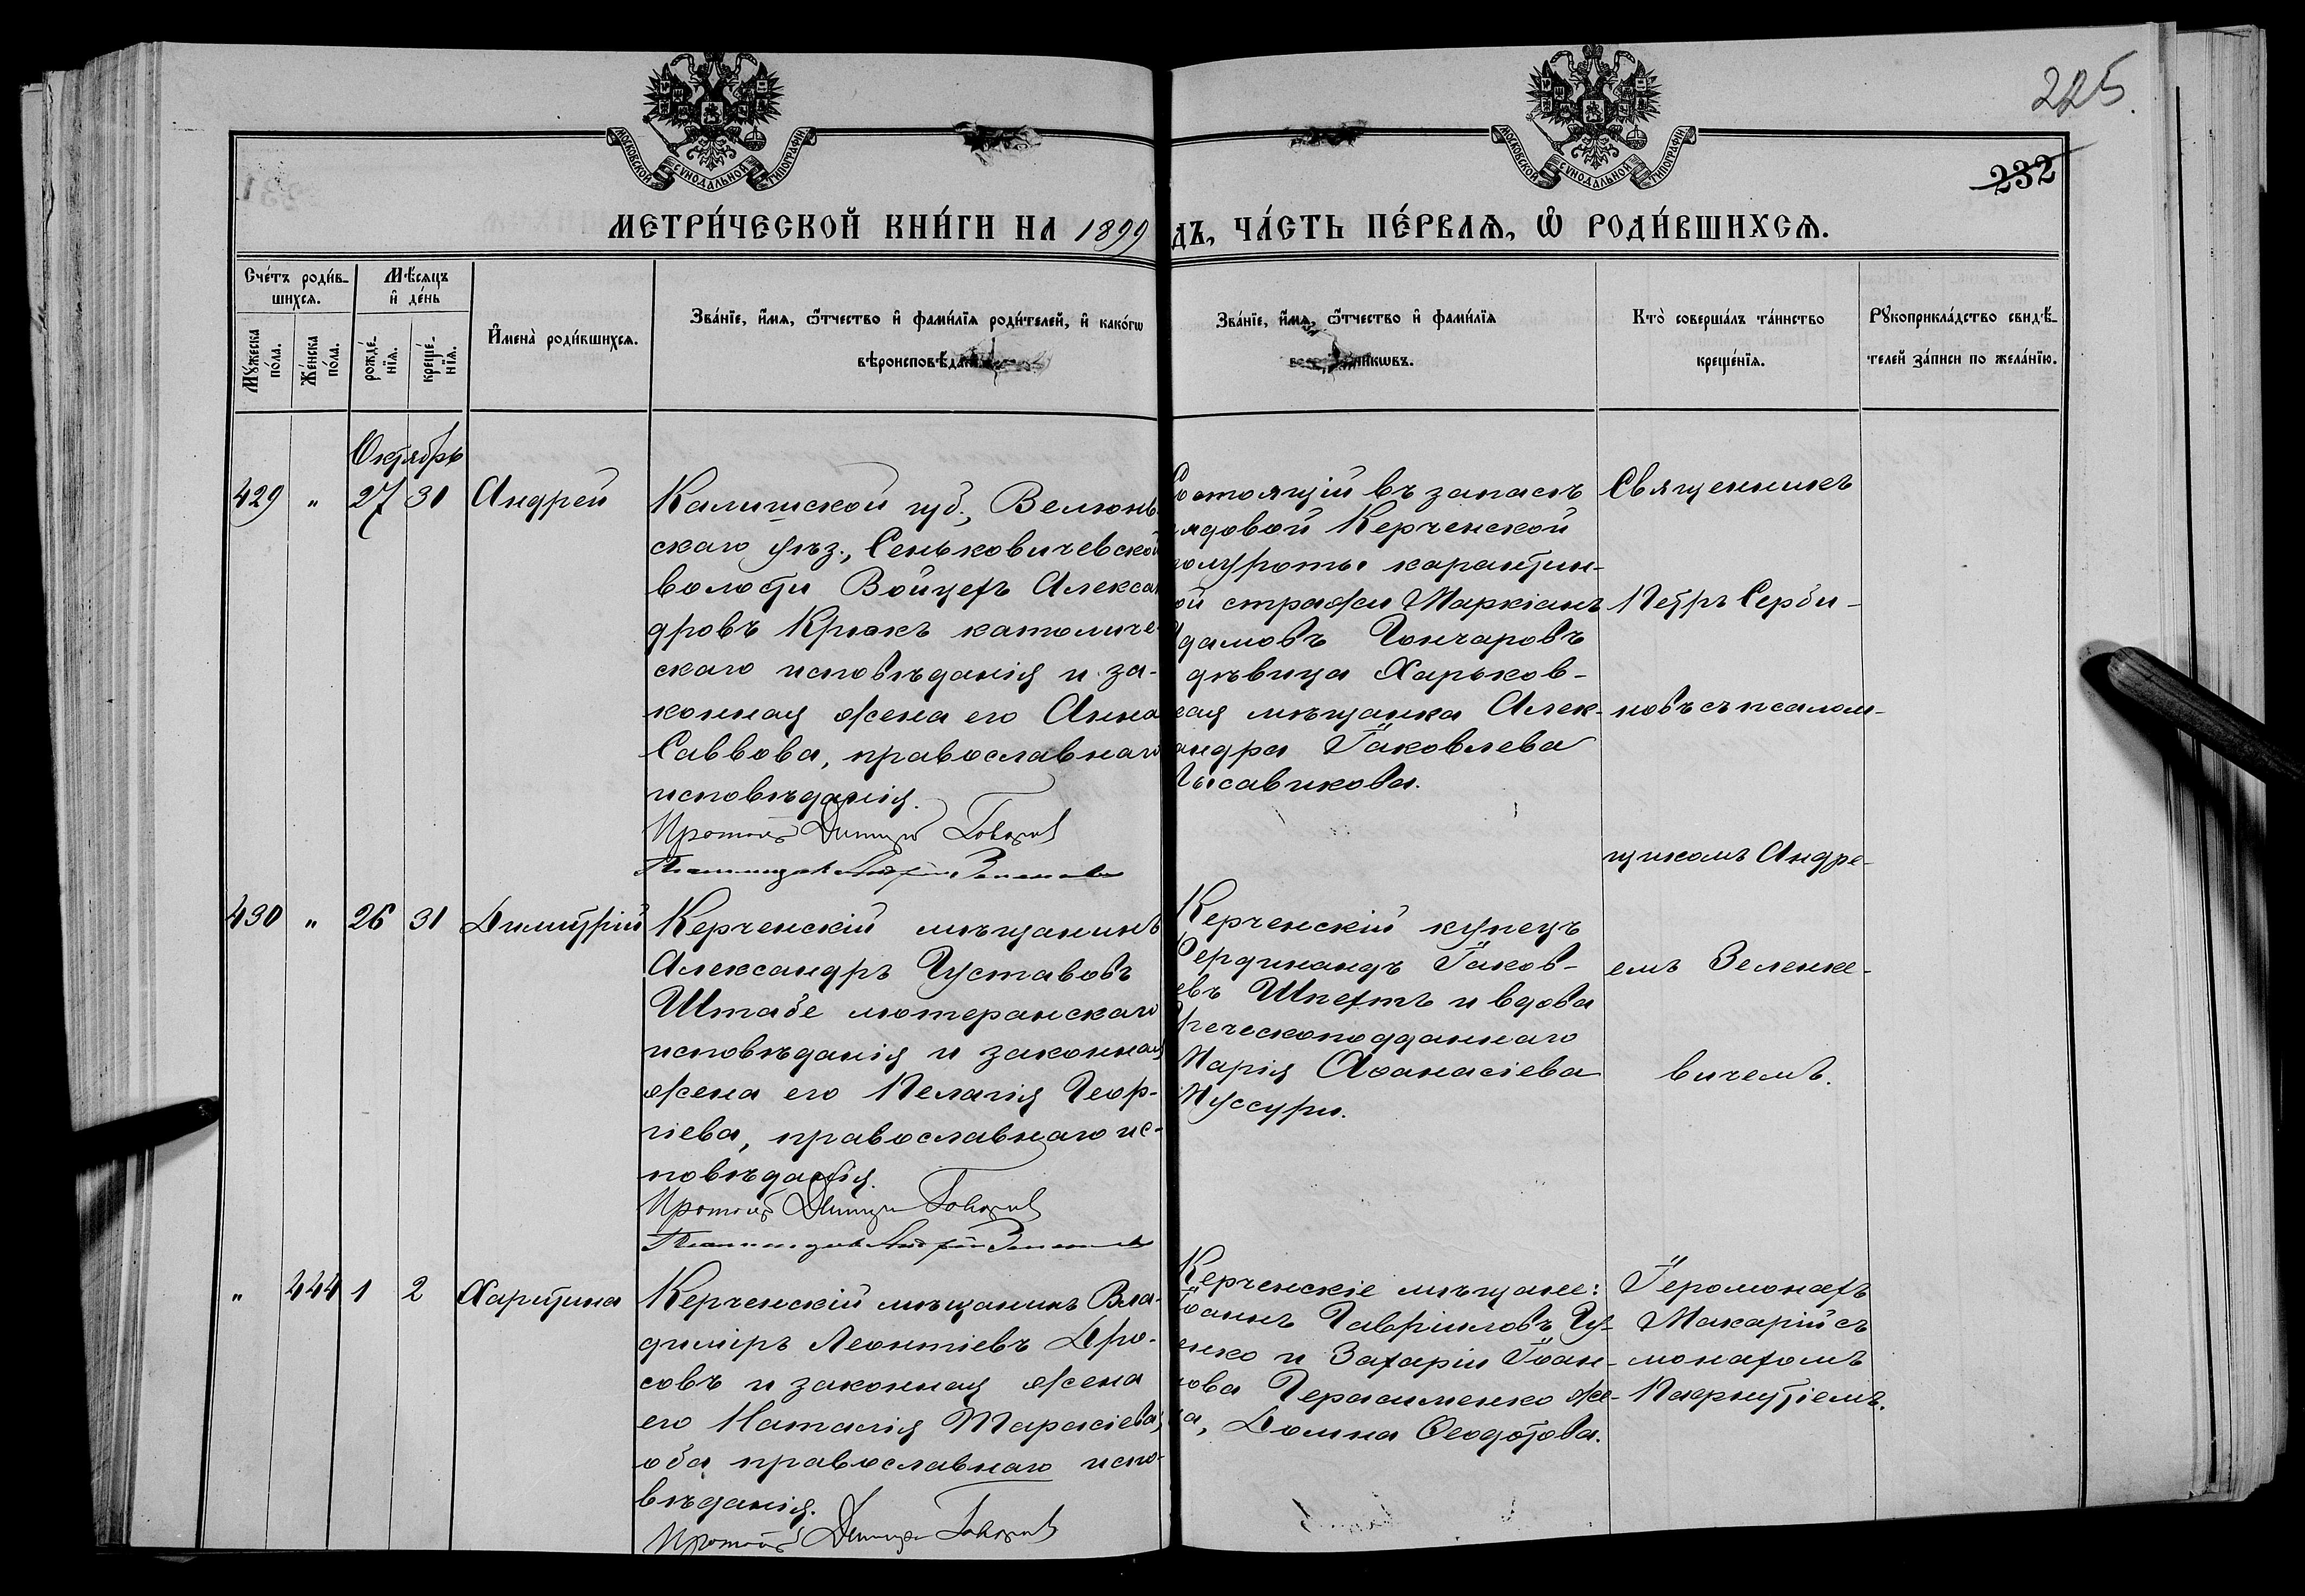 225.
232
МОСКОВСКОЙ СѴНОДАЛЬНОЙ ТИПОГРАФІИ
МОСКОВСКОЙ СѴНОДАЛЬНОЙ ТИПОГРАФІИ
МЕТРИ́ЧЕСКОЙ КНИ́ГИ НА 1899 ДЪ, ЧА́СТЬ ПЕ́РВАѦ, Ѿ РОДИ́ВШИХСѦ.
Сче́тъ роди́в-
шихсѧ.
Мꙋ́жеска
по́ла.
Же́нска
по́ла.
Мѣ́сѧцъ
и҆ де́нь
рожде́-
нїѧ.
креще́-
нїѧ.
И҆мена̀ роди́вшихсѧ.
Зва́нїе, и҆́мѧ, ѻ҆́тчество и҆ фами́лїѧ роди́телей, и҆ како́гѡ
вѣроисповѣ́данїѧ.
Зва́нїе, и҆́мѧ, ѻ҆́тчество и҆ фами́лїѧ
Кто̀ соверша́лъ та́инство
креще́нїѧ.
Рꙋкоприкла́дство свидѣ́-
телей за́писи по жела́нїю.
Октябрь
429 „ 27 31 Андрей
Калишской губ., Велюнь-
скаго уѣз., Сеньковичевской
волости Войцех Алексан
дровъ Крюкъ католиче-
скаго исповѣданія и за-
конная жена его Анна
Саввова, православнаго
исповѣданія.
Протоіер Димитр Говоров
Псаломщик Андрей
Состоящій въ запасѣ
рядовой Керченской
полуроты карантин-
ой стражи Маркіанъ
Адамовъ Гончаровъ
дѣвица Харьков-
кая мѣщанка Алек-
андра Іаковлева
Лысавикова.
Священникъ
Петръ Серби-
новъ съ псалом-
щикомъ Андре-
емъ Зеленке-
вичемъ.
430 „ 26 31 Димитрій
Керченскій мѣщанинъ
Александръ Густавовъ
Штабе лютеранскаго
исповѣданія и законная
жена его Пелагія Геор-
гіева, православнаго ис-
повѣданія.
Протоіер Димитр Говоров
Псаломщик Андрей
Керченскій купецъ
Фердинандъ Іаков-
евъ Шпехтъ и вдова
Греческоподданнаго
Марія Аѳанасіева
Муссури.
„ 444 1 2 Харитина
Керченскій мѣщанинъ Вла-
диміръ Леонтіевъ Дро-
совъ и законная жена
его Наталія Тарасіева,
оба православнаго испо-
вѣданія.
Протоіер Димитр Говоров
Керченскіе мѣщане:
Іоаннъ Гавріиловъ Гу-
енко и Захаріи Іоан-
нова Герасименко же-
на, Домна Ѳеодотова.
Іеромонахъ
Макарій съ
монахомъ
Пафнутіемъ.